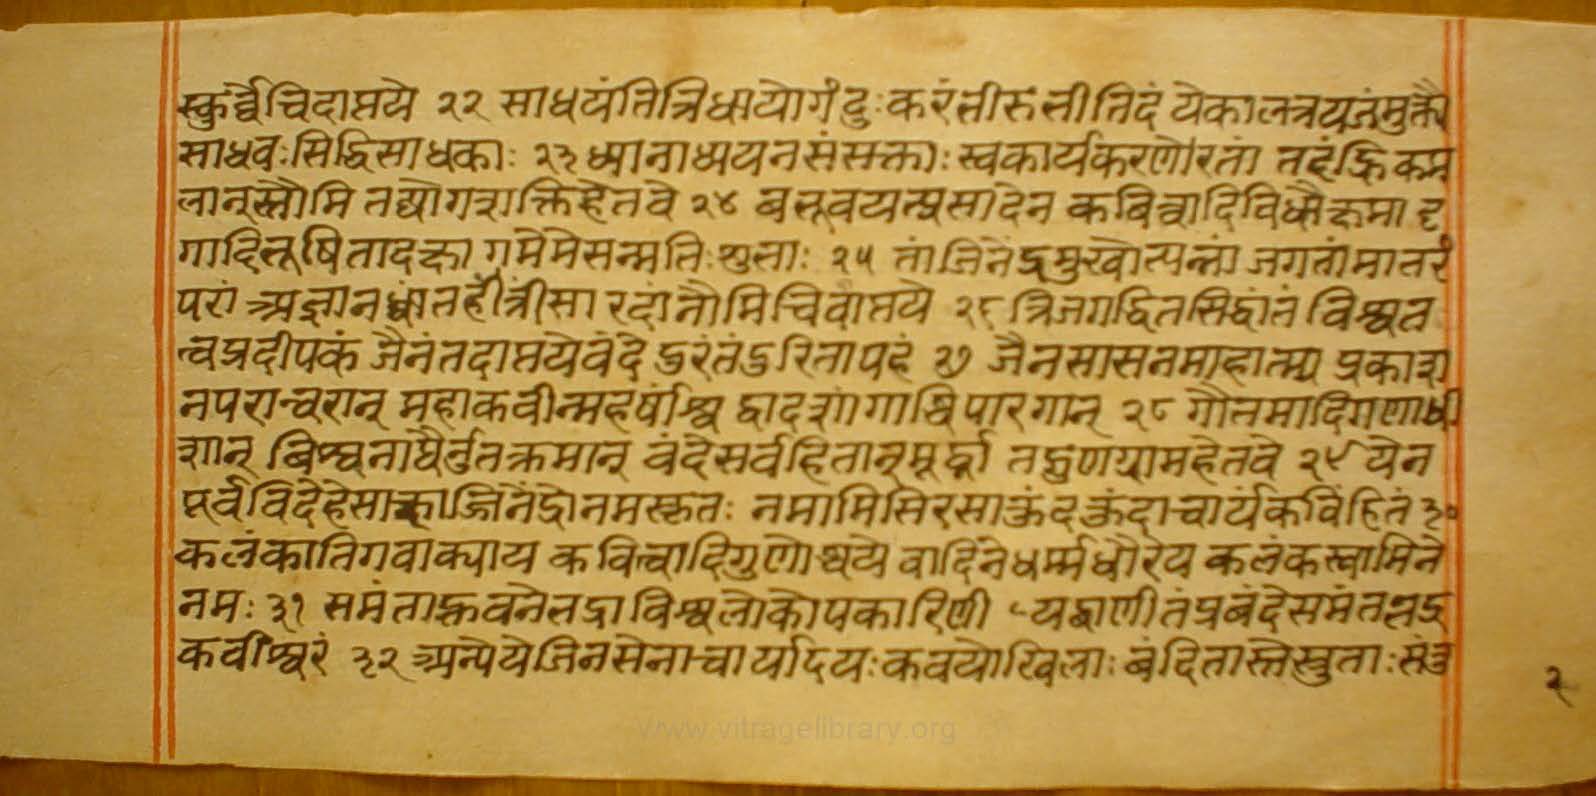 स्कुर्व्वेचिदाप्तये २२ साधयंतित्रिधायोगंदुःकरंतीरुतीतिदं येकालत्रयजंमुक्त्यै
साधवःसिद्धिसाधकाः २३ ध्यानाध्ययनसंसक्ताःस्वकार्यकरणेरता तदंह्रिकम
लान्स्तौमि तद्योगशक्तिहेतवे २४ बभूवयत्प्रसादेन कवित्वादिविधौक्षमा दृ
गादिभूषितादक्षा गमेमेसन्मतिःशुभाः २५ तांजिनेंद्रमुखोत्पन्नां जगतांमातरं
परां अज्ञानध्वांतहंत्रींसारदांनौमिचिदाप्तये २६ त्रिजगद्धितसिद्धांतं विश्वत
त्वप्रदीपकं जैनंतदाप्तयेवंदे डुरंतंडुरितापहं २७ जैनसासनमाहात्म्य प्रकाश
नपरान्वरान् महाकवीन्महर्षीश्च द्वादशांगाब्धिपारगान् २८ गौतमादिगणाधी
शान् विश्वनाथैर्नुतक्रमान् वंदेसर्वहितान्मूर्द्ध्ना तद्गुणग्रामहेतवे २९ येन
पूर्वविदेहेसाक्षाज्जिनेंद्रोनमस्कृतः नमामिसिरसाकुंदकुंदाचार्यंकविंहितं ३०
कलंकातिगवाक्याय कवित्वादिगुणोश्चये वादिनेधर्म्मधौरेय कलंकस्वामिने
नमः ३१ समंताद्भुवनेभद्रा विश्वलोकोपकारिणी यद्वाणीतंप्रबंदेसमंतभद्रं
कवीश्वरं ३२ अन्येयेजिनसेनाचार्यादयःकवयोखिलाः बंदितास्तेस्तुताःसंतु
२
www.vitragelibrary.org